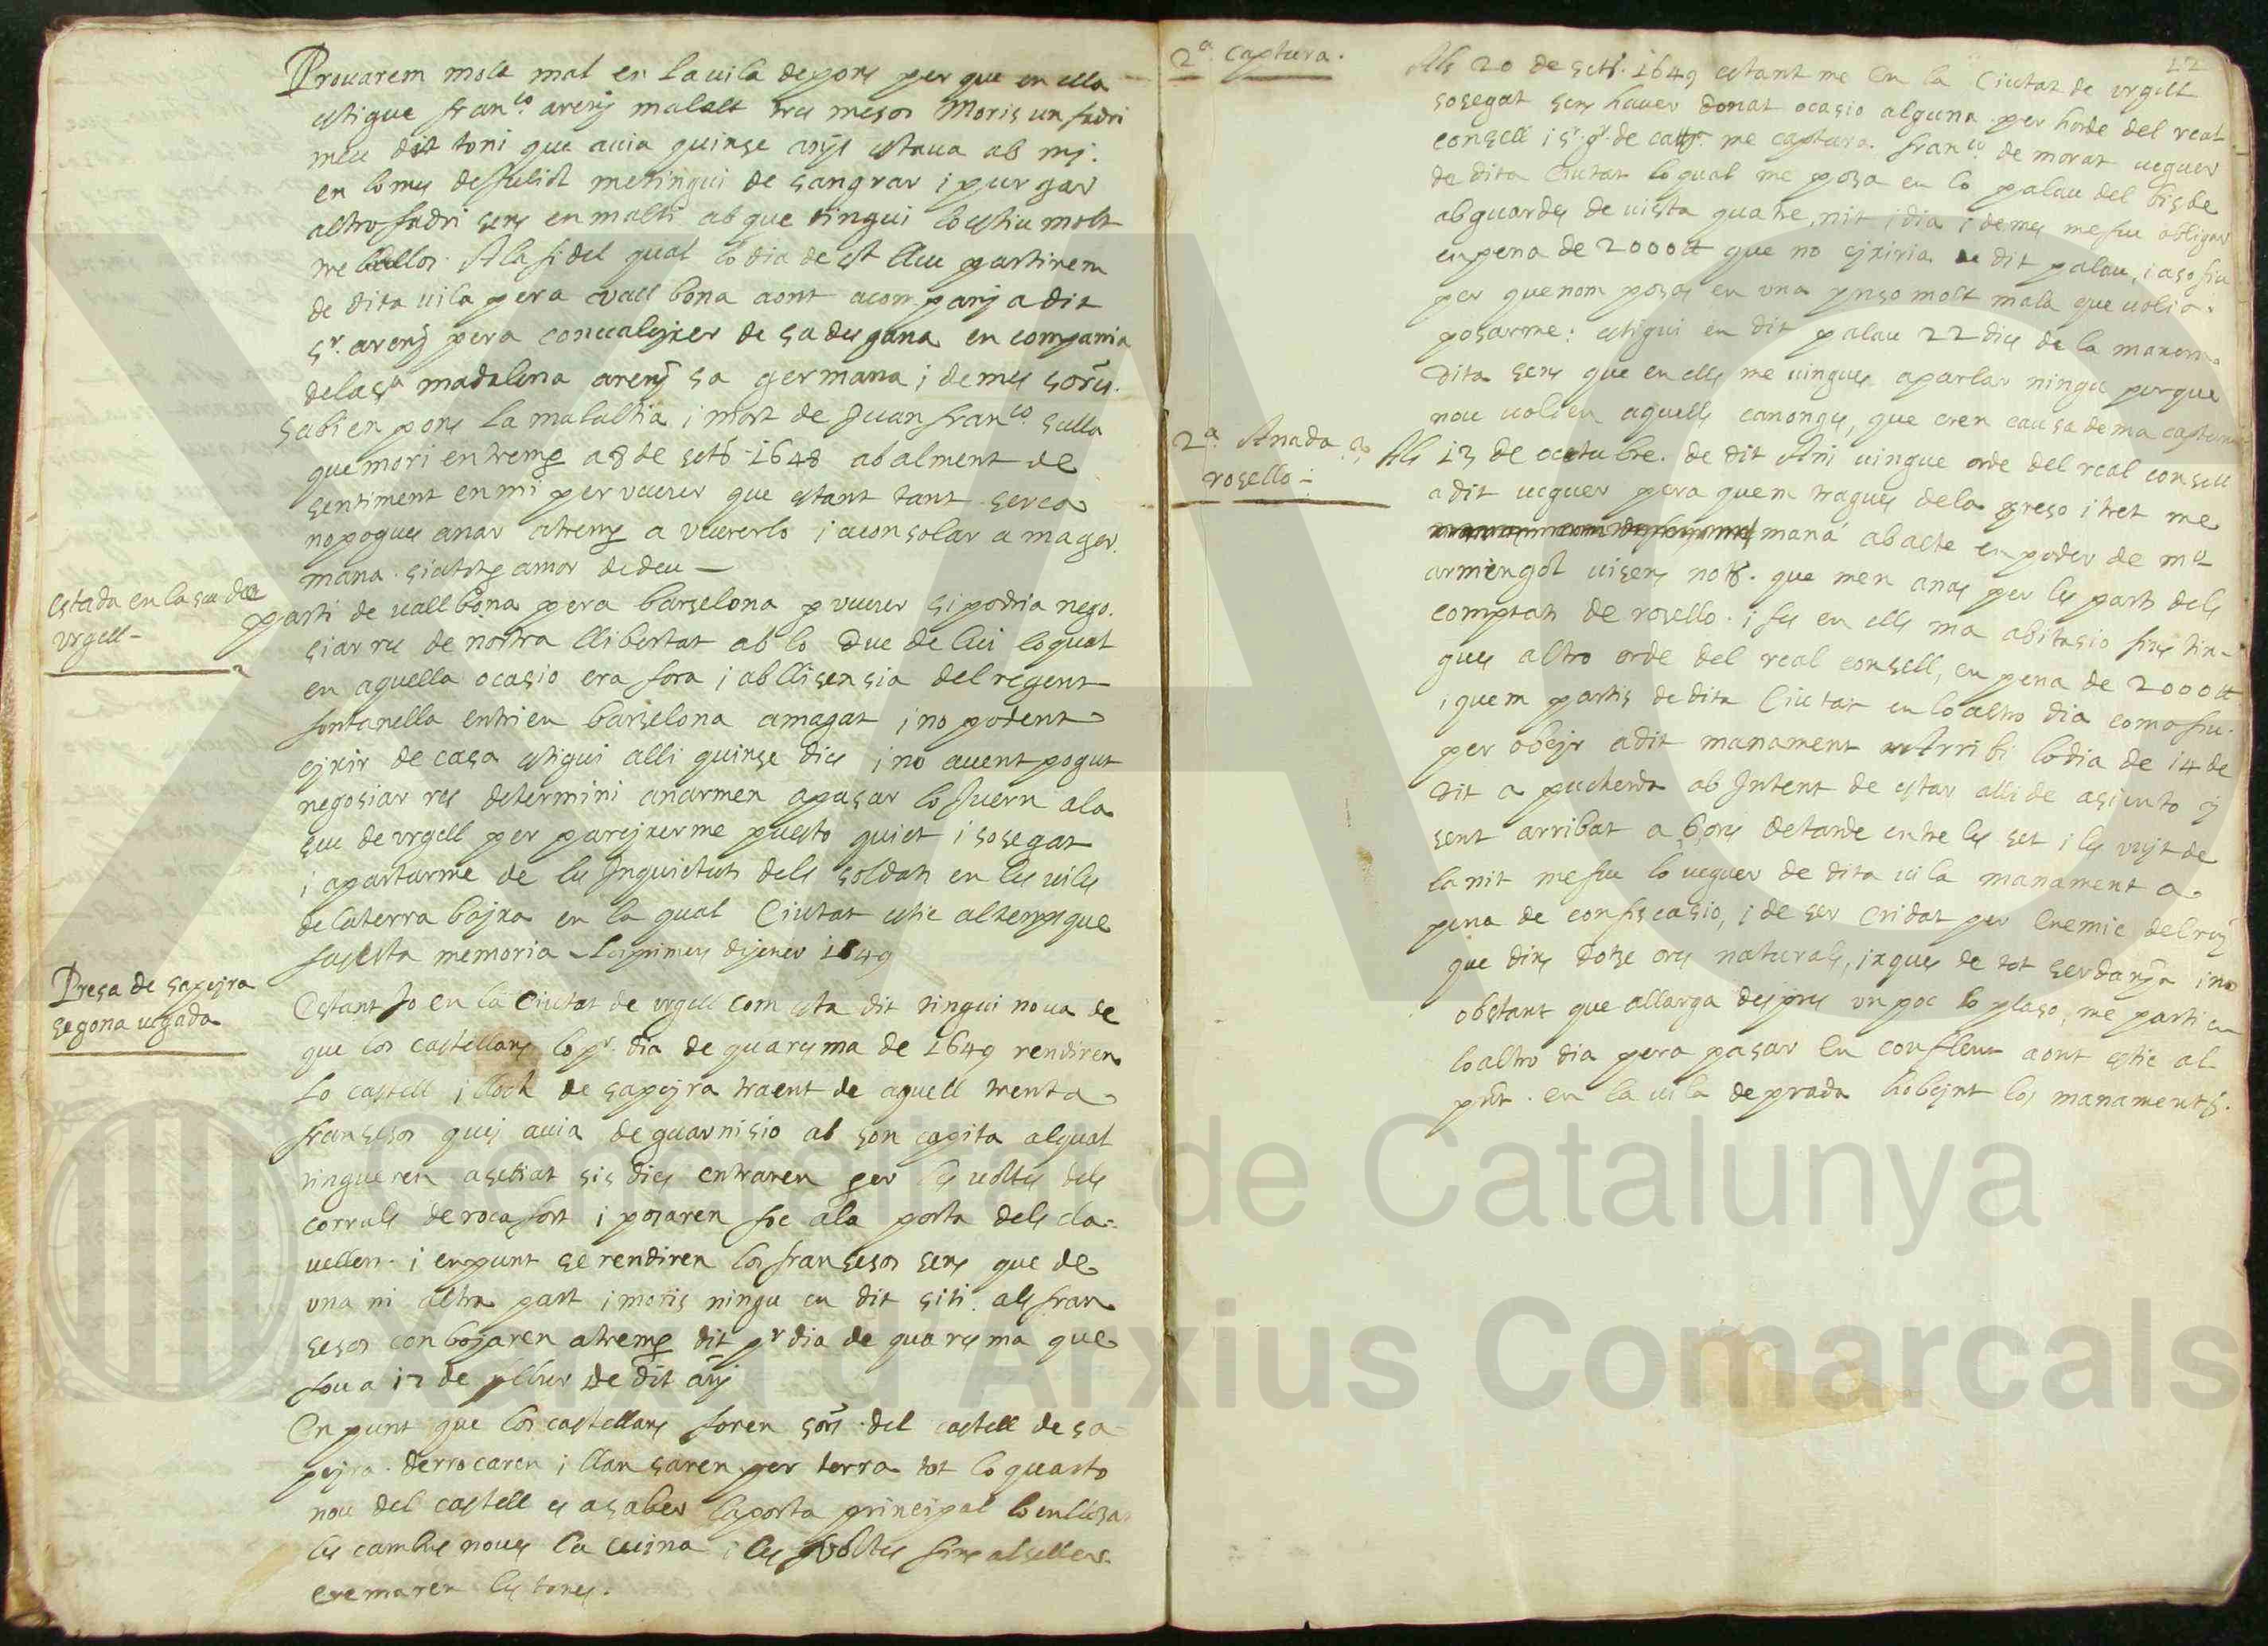 Provarem molt mal en la vila de pons per que en ella
estigue fran.co areny malalt tres mesos Moris un fadri
meu dit toni que auia quinse anys estaua ab mi.
en lo mes de Juliol me tingui de sangrar i purgar
altro fadri sens en malti ab que tingui lo estiu molt
treballos. A la fi del qual lo dia de st lluc partirem
de dita uila pera vall bona aont acompany a dit
sr. areny pera conualexer de sa desgana en compania
de la sra madalena areny sa germana i demes sors.
sabi en pons la malaltia i mort de Juan fran.co sulla
que mori en tremp a 8 de setr. 1648 ab alment de
sentiment en mi per veurer que estant tant serca
no pogues anar a tremp a veurerlo i a consolar a ma ger
mana. sia tot per amor de deu —
Estada en la seu de
vrgell -
parti de uallbona pera barselona p veurer si podria nego.
siar res de nostra llibertat ab lo Duc de lui lo qual
en aquella ocasio era fora i ab llisensia del regent
fontanella entri en barselona amagat i no podent
exir de casa estigui alli quinse dies i no auent pogut
negosiar res determini anarmen a pasar lo Juern a la
seu de vrgell per parexerme puesto quiet i sosegat
i apartarme de les Inquietuts dels soldats en les viles
de la terra baxa en la qual Ciutat estic al temps que
fas esta memoria - los primers de jener 1649
Presa de sapeyra
segona vegada
Estant Jo en la Ciutat de vrgell com esta dit tingui noua de
que los castellans lo pr. dia de quaresma de 1649 rendiren
lo castell i lloch de sapeyra traent de aquell trenta
fransesos quey auia de guarnisio ab son capita al qual
tingueren asetiat sis dies entraren per les voltes dels
corrals de rocafort i posaren foc a la porta dels cla-
uellers. i en punt se rendiren los fransesos sens que de
una ni altra part i moris ningu en dit siti. als fran
sesos conbojaren a tremp dit pr dia de quaresma que
fou a 17 de febrer de dit any
En punt que los castellans foren sors del castell de sa
peyra. derrocaren i llansaren per terra tot lo quarto
nou del castell es a saber la porta principal lo enllosat
les cambres noues la cuina i les voltes fins al seller
cremaren les tones.
2a. captura.
12
Als 20 de setr. 1649 estant me en la Ciutat de vrgell
sosegat sens hauer donat ocasio alguna. per horde del real
consell i sr. gr. de cattr. me captura fran.co de morat veguer
de dita Ciutat lo qual me posa en lo palau del bisbe
ab guardes de vista quatre, nit i dia i demes me feu obligar
en pena de 2000 ll que no exiria de dit palau, i aso feu
per que nom posas en una preso molt mala que uolia.
posarme: estigui en dit palau 22 dies de la manera
dita sens que en ells me uingues a parlar ningu perque
nou uolien aquells canonges, que eren causa de ma captura
2a. Anada a
rosello -
Als 13 de octubre. de dit Ani uingue orde del real consell
a dit veguer pera quem tragues de la preso i tret me
mana ab acte en poder de mo
armengol uisens notr. que men anas per les parts dels
comptats de rosello. i fes en ells ma abitasio fins tin-
gues altro orde del real consell, en pena de 2000 ll
i quem partis de dita Ciutat en lo altro dia com o fiu.
per obeyr a dit manament Arribi lo dia de 14 de
dit a puchserda ab Intent de estar alli de asiento i
sent arribat a 6 ores de tarde entre les set i les vuyt de
la nit me feu lo veguer de dita uila manament a
pena de confiscasio, i de ser cridat per Enemic del rey
que dins dotze ores naturals, ixques de tot serdanya i no
obstant que allarga despres un poc lo plaso, me parti en
lo altro dia pera pasar En conflent aont estic al
pnt. en la uila de prada hobeynt los manaments.